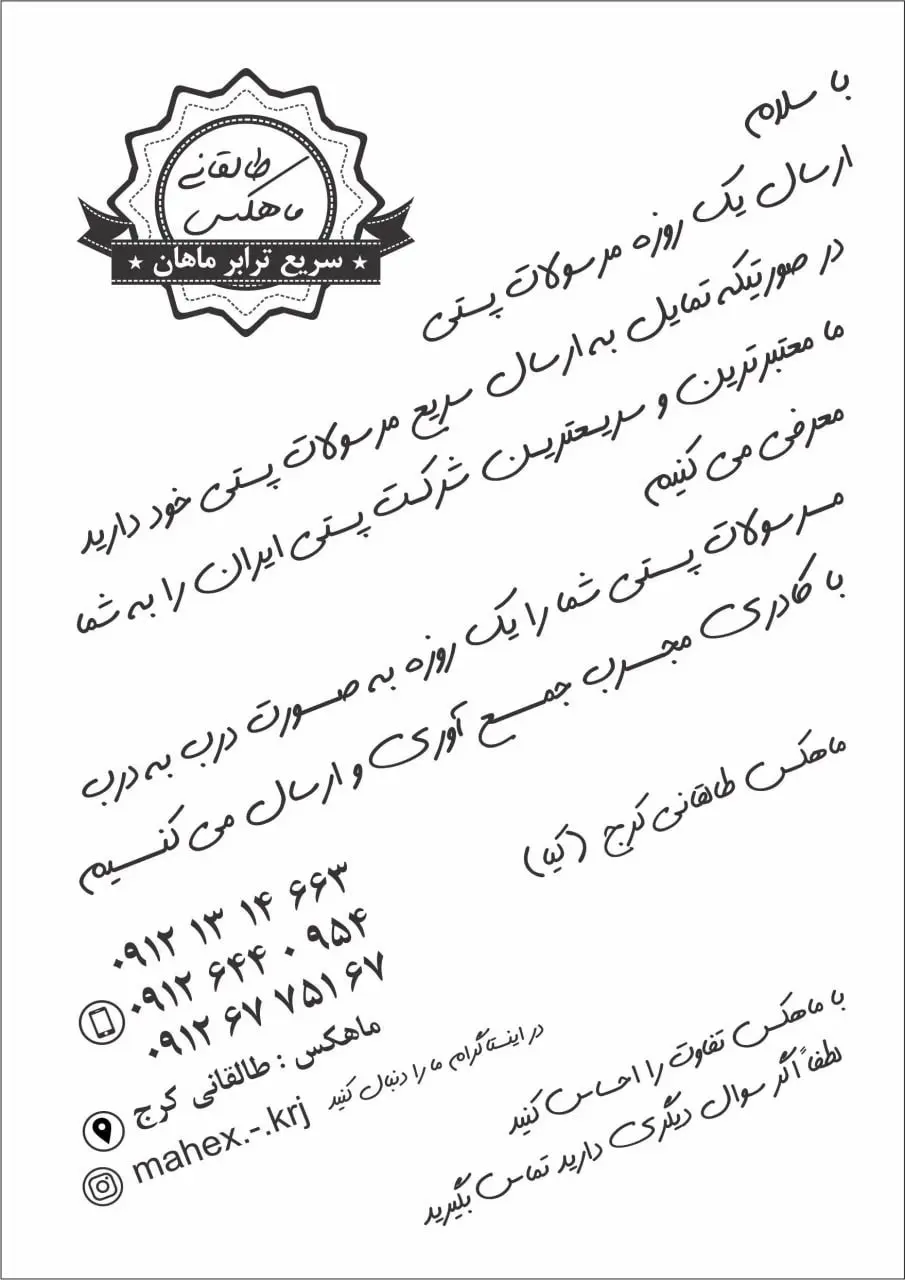 طالقانی
ماهکس
سریع ترابر ماهان
با سلام
ارسال یک روزه مرسولات پستی
در صورتیکه تمایل به ارسال سریع مرسولات پستی خود دارید
ما معتبرترین و سریعترین شرکت پستی ایران را به شما
معرفی می کنیم
مرسولات پستی شما را یک روزه به صورت درب به درب
با کادری مجرب جمع آوری و ارسال می کنیم
ماهکس طالقانی کرج (کیا)
۰۹۱۲ ۱۳ ۱۴ ۶۶۳
۰۹۱۲ ۶۴۴ ۰ ۹۵۴
۰۹۱۲ ۶۷ ۷۵۱ ۶۷
ماهکس : طالقانی کرج
mahex.-.krj
در اینستاگرام ما را دنبال کنید
با ماهکس تفاوت را احساس کنید
لطفاً اگر سوال دیگری دارید تماس بگیرید